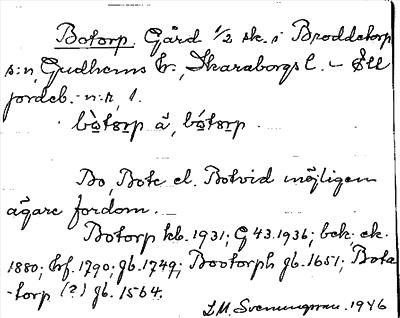 Botorp. Gård 1/2 sk. i Broddetorp
s:n, Gudhems hr., Skaraborgs l. – Ell
jordeb. n:r, 1.
bo̱torp å, bo̱torp.
Bo, Bote el. Botvid möjligen
ägare fordom.
Botorp kb. 1931; G 43.1936; bek. ek.
1880; hrf. 1790; gb. 1749; Bootorph gb. 1651; Bota
-torp (?) gb. 1564.
1946